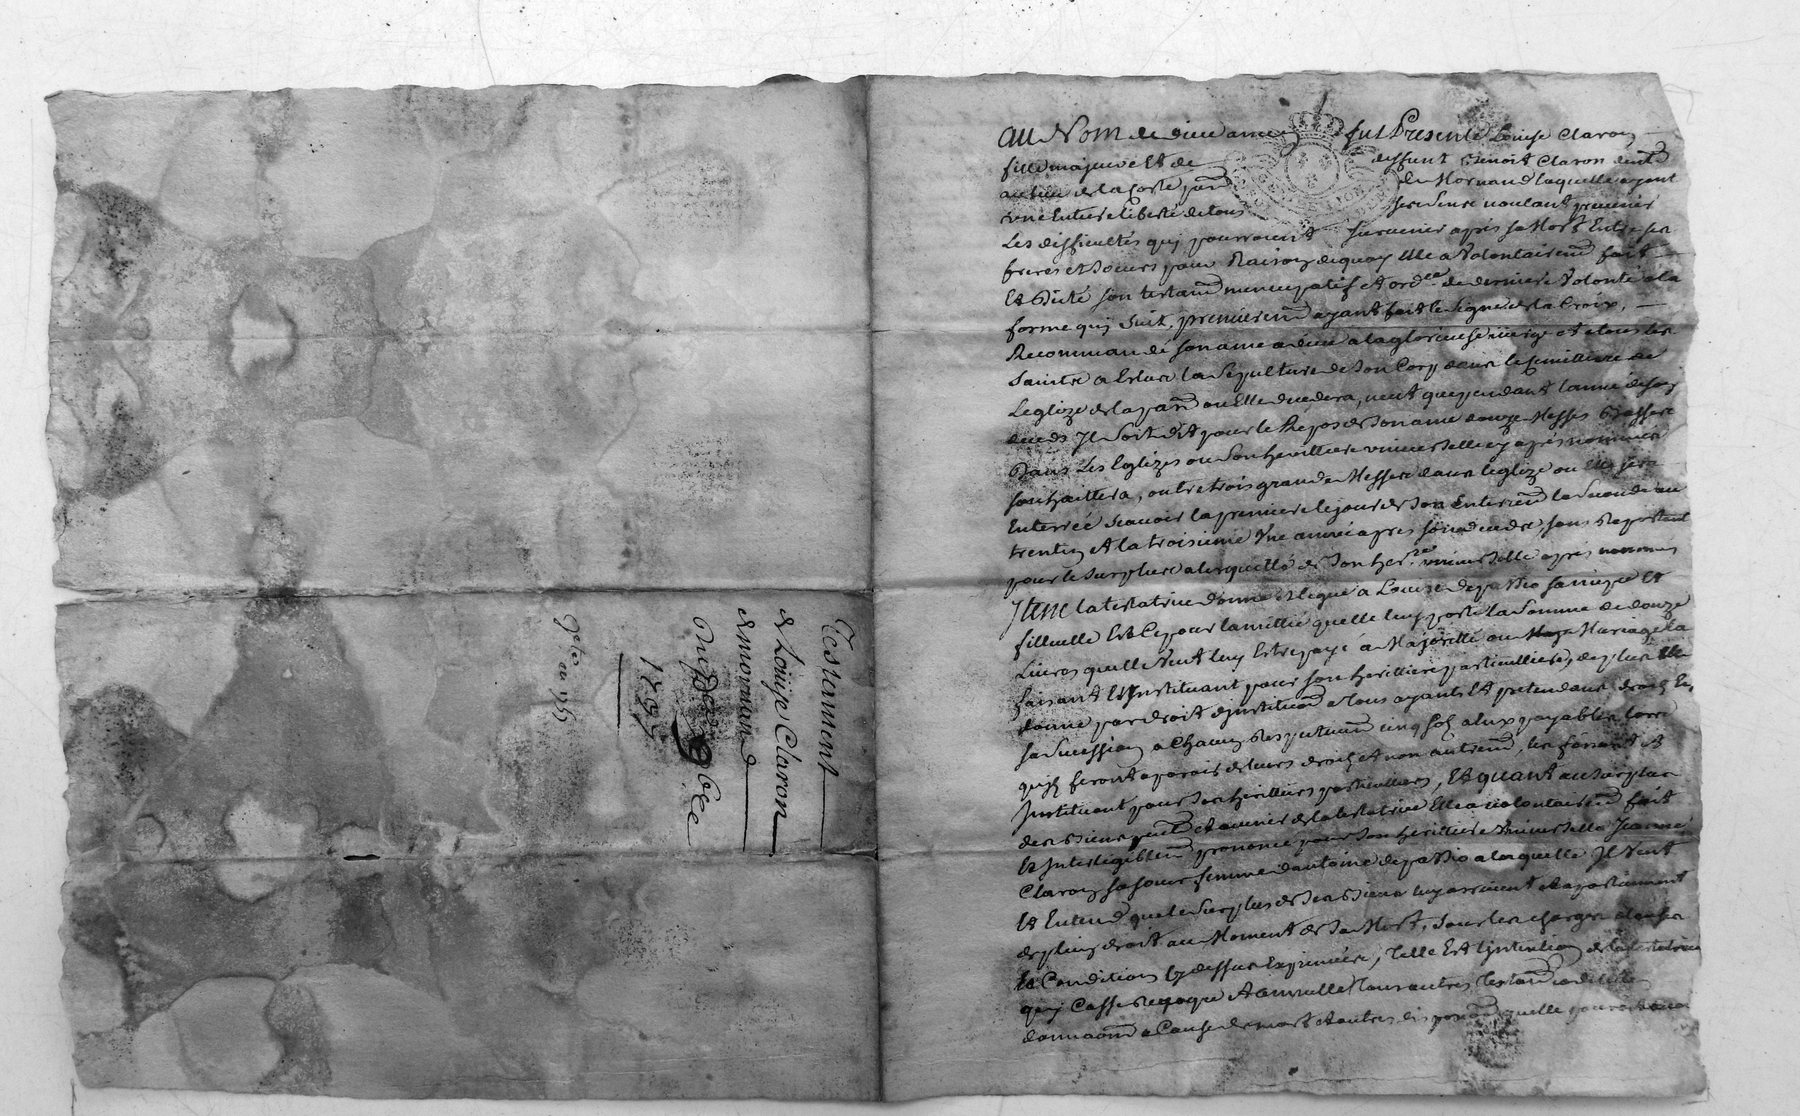 Testament
de Louise Claron
de mornand
1757
au Nom de dieu amen fut Presente Louise Claron
fille majeure Et de deffunt Benoit Claron
au lieu de la Coste de Mornand laquelle ayant
une Entiere Liberté de tous ses sens voulant prevenir
Les difficultés quy pourroient survenir après sa Mort Entre ses
freres et soeurs pour Raison de quoy Elle a Volontairemt fait
Et Dicté son testamt nuncupatif et ordce de derniere Volonté a la
forme quy suit. premieremt ayant fait le signe de la Croix,
Recommandé son ame a dieu a la glorieuse vierge et a tous les
Saints a Esleu la sepulture de son Corp dans le Cimittiere de
Leglize de la parr ou Elle decedera, veut que pendant lanné de son
deceds Il soit dit pour le Repos de son ame douze Messes Basses
Dans Les Eglizes ou son herittiere universelle cy après nommée
souhaittera, outre trois grandes Messes dans leglize ou Elle sera
Enterrée scavoir la premiere le jour de son Enterremt la seconde au
trentin et la troisieme Une année après son decedz, sans
pour le surplus a de son herre universelle après nommée
Item la testatrice donne et legue a Louise depassio sa niepce Et
filleulle Et Ce pour lamittié quelle luy porte la somme de douze
Livres quelle Veut luy Estre payé a Majorité ou Mariage La
faisant Et Instituant pour son herittiere particulliere, de plus Elle
donne par droit dinstitution a tous ayants Et pretendans droit En
sa succession a Chacun cinq solz a Eux payables lors
quilz feront aparoir de leurs droits et non autremt, les faisant Et
Instituant pour ses herittiers particulliers, Et quant au surplus
des Biens presents et avenir de la testatrice Elle a volontairemt fait
Et Intelligiblemt prononcé pour son herittiere Universelle Jeanne
Claron sa soeur femme dantoine depassio a laquelle Il Veut
Et Entend que le surplus de ses Biens luy arrivent et apartiennent
de plein droit au Moment de sa Mort, sous les charges clauses
Et Conditions Cy dessus Exprimées, Telle Est lintention de la testatrice
quy Casse Revoque et annulle tous autres testamts codicilles
donnaons a Cause de mort et autres disposons quelle pourroit avoir